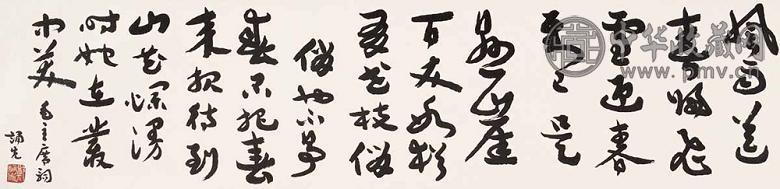 風雨送
春歸飛
雪迎春
到已是
懸崖
百丈冰猶
有花枝俏
俏也不爭
春只把春
来報待到
山花爛漫
時她在叢
中笑 毛主席詞
誦先
中华收藏网
www.pmv.cn